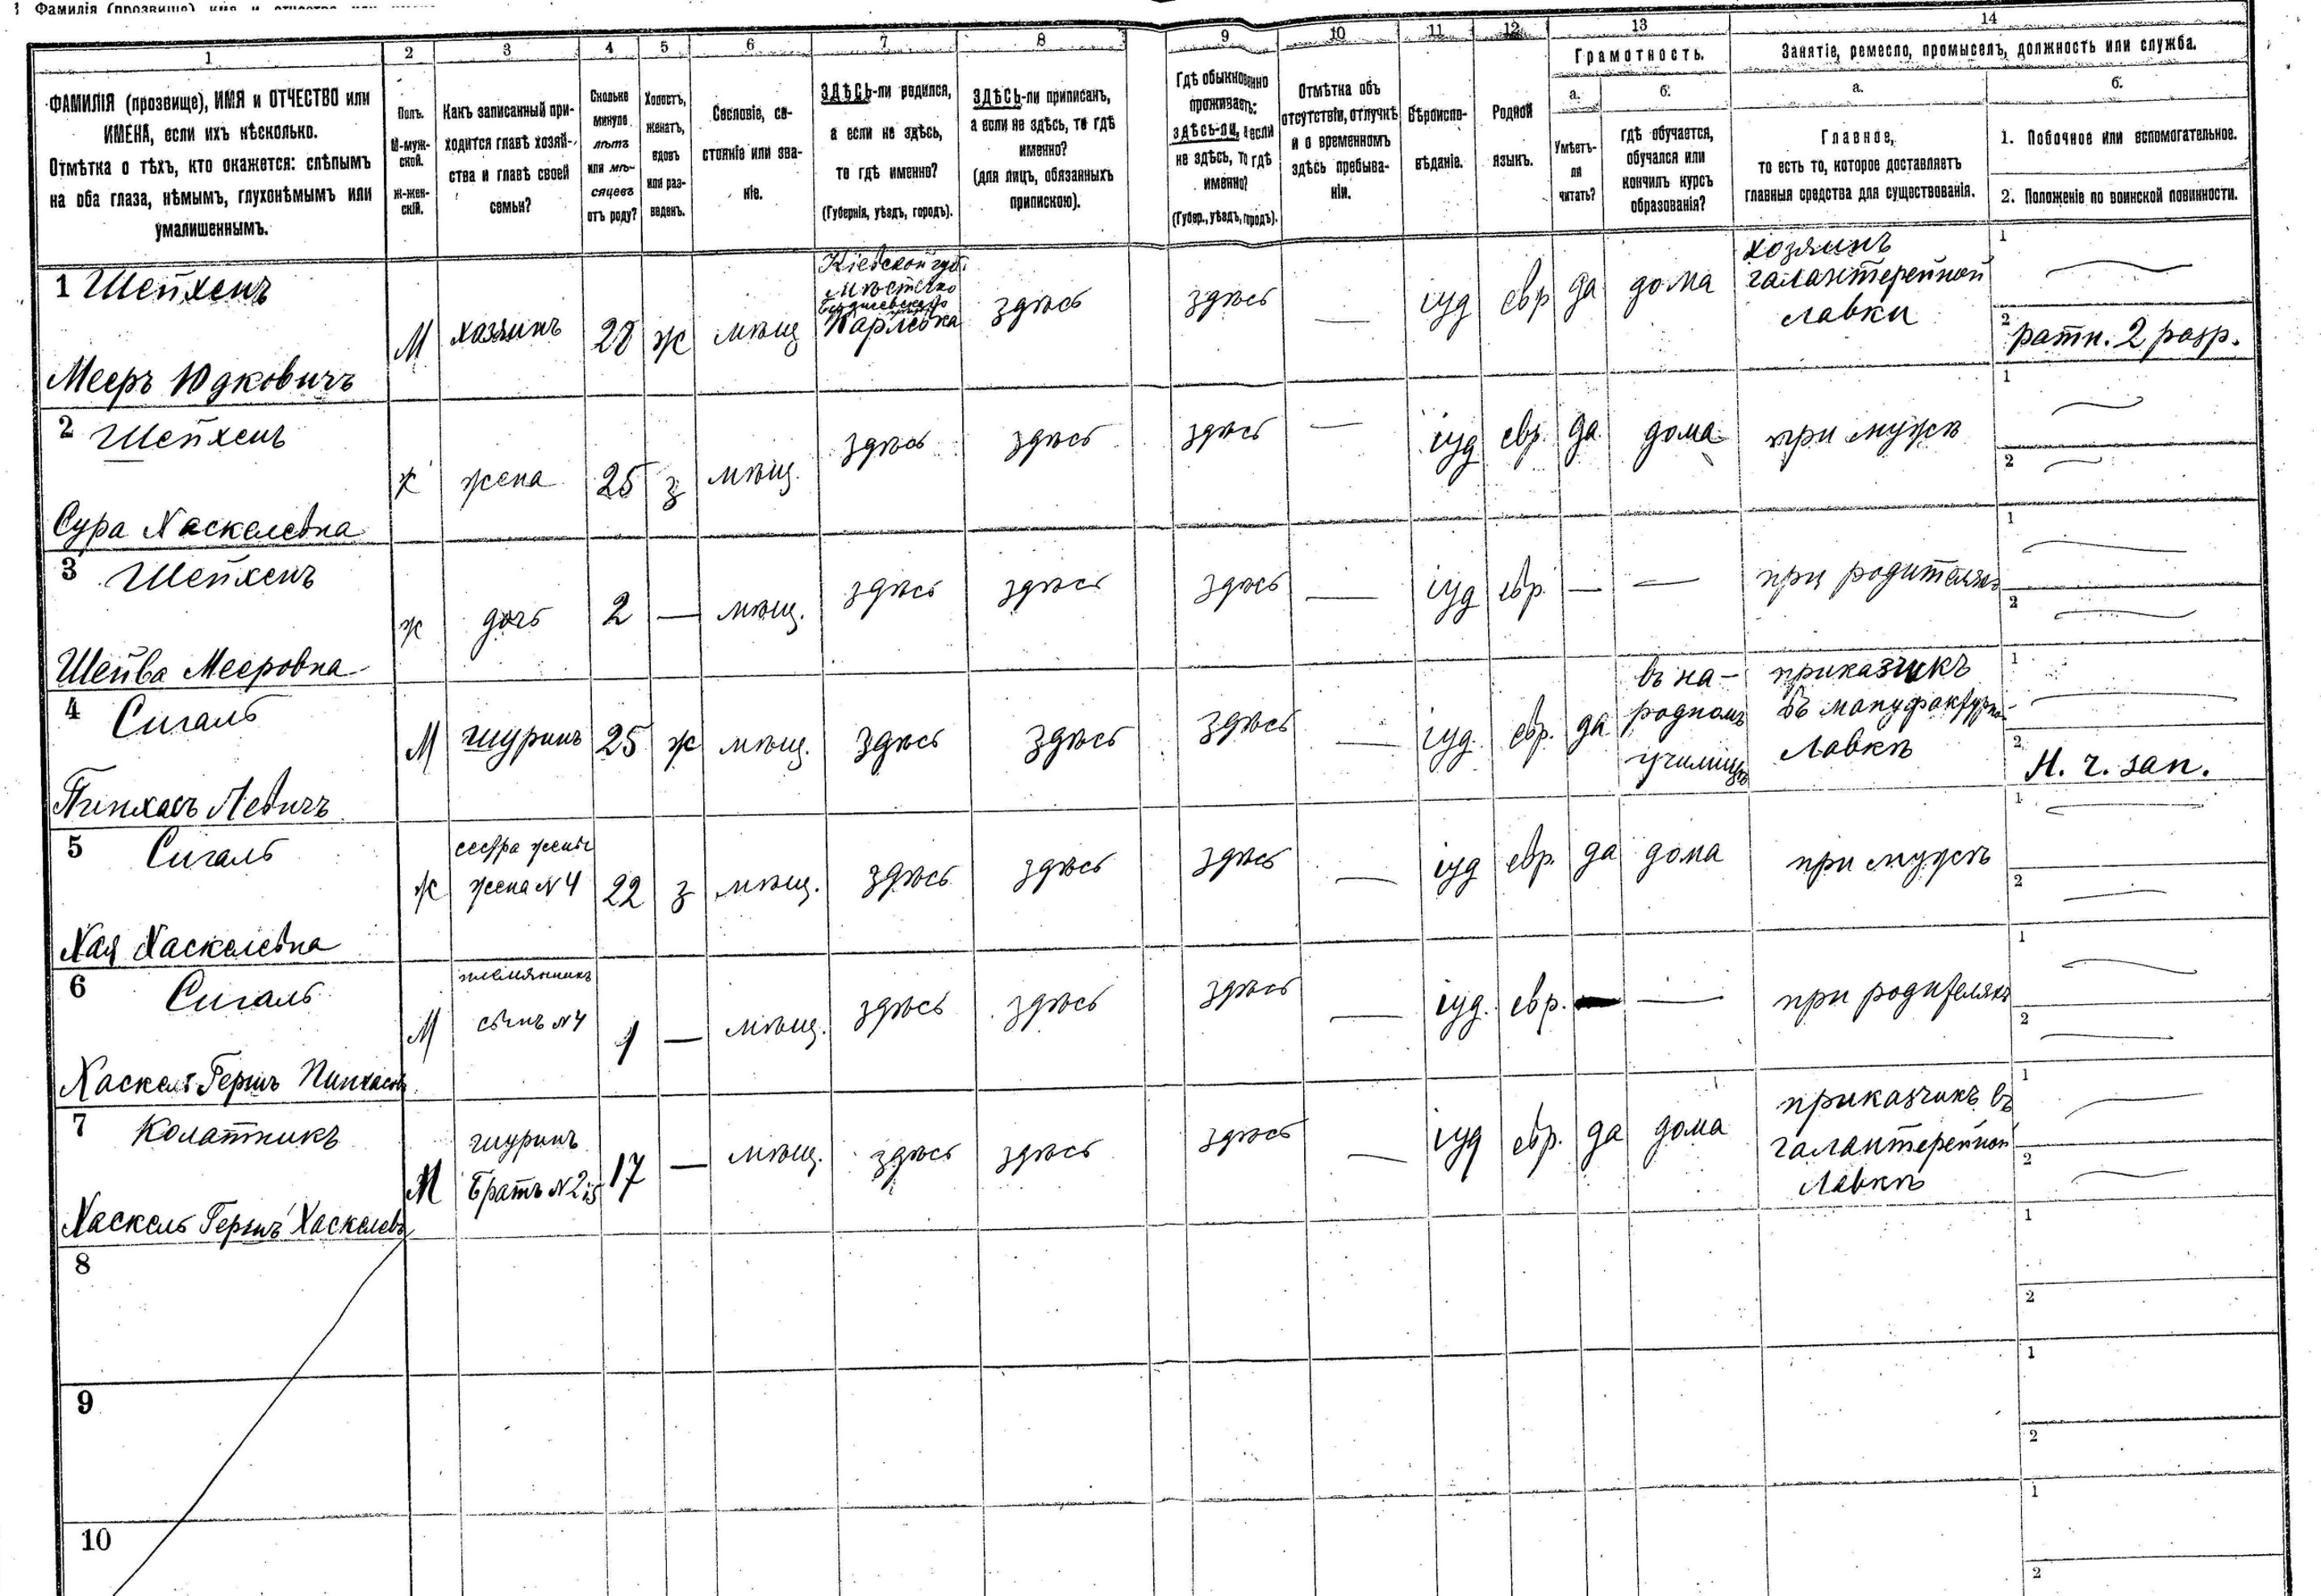 Фамилія (прозвище)
1
2
3
4
5
6
7
8
9
10
11
12
13
14
ФАМИЛІЯ (прозвище), ИМЯ и ОТЧЕСТВО или
ИМЕНА, если ихъ нѣсколько.
Отмѣтка о тѣхъ, кто окажется: слѣпымъ
на оба глаза, нѣмымъ, глухонѣмымъ или
умалишеннымъ.
Полъ.
М-муж-
ской.
Ж-жен-
скій.
Какъ записанный при-
ходится главѣ хозяй-
ства и главѣ своей
семьи?
Сколько
минуло
лѣтъ
или мѣ-
сяцевъ
отъ роду?
Холостъ,
женатъ,
вдовъ
или раз-
веденъ.
Сословіе, со-
стояніе или зва-
ніе.
ЗДѢСЬ-ли родился,
а если не здѣсь,
то гдѣ именно?
(Губернія, уѣздъ, городъ).
ЗДѢСЬ-ли приписанъ,
а если не здѣсь, то гдѣ
именно?
(для лицъ, обязанныхъ
припискою).
Гдѣ обыкновенно
проживаетъ:
ЗДѢСЬ-ЛИ, а если
не здѣсь, то гдѣ
именно?
(Губер., уѣздъ, городъ).
Отмѣтка объ
отсутствіи, отлучкѣ
и о временномъ
здѣсь пребыва-
ніи.
Вѣроиспо-
вѣданіе.
Родной
языкъ.
Грамотность.
а.
Умѣетъ-
ли
читать?
б.
гдѣ обучается,
обучался или
кончилъ курсъ
образованія?
Занятіе, ремесло, промыселъ, должность или служба.
а.
Главное,
то есть то, которое доставляетъ
главныя средства для существованія.
б.
1. Побочное или вспомогательное.
2. Положеніе по воинской повинности.
1 Шейхенъ
Мееръ Юдковичъ
М
хозяинъ
28
ж
мѣщ
Кіевской губ.
мѣстечко
Бердичевскаго
здѣсь
здѣсь
—
іуд
евр
да
дома
хозяинъ
галантерейной
лавки
1
2
ратн. 2 разр.
2 Шейхенъ
Сура Хаскелевна
ж
жена
25
з
мѣщ.
здѣсь
здѣсь
здѣсь
—
іуд
евр.
да
дома
при мужѣ
1
2
3 Шейхенъ
Шейва Мееровна
ж
дочь
2
—
мѣщ.
здѣсь
здѣсь
здѣсь
—
іуд
евр.
—
—
при родителяхъ
1
2
4 Сигаль
Пинхасъ Левичъ
М
шуринъ
25
ж
мѣщ.
здѣсь
здѣсь
здѣсь
—
іуд.
евр.
да
въ на-
родномъ
училищѣ
приказчикъ
въ мануфактурн.
Лавкѣ
1
2
Н. ч. зап.
5 Сигаль
Хая Хаскелевна
ж
сестра жены
жена N 4
22
з
мѣщ.
здѣсь
здѣсь
здѣсь
—
іуд
евр.
да
дома
при мужѣ
1
2
6 Сигаль
Хаскель Гершъ Пинхасов
М
племянникъ
сынъ N 4
1
—
мѣщ.
здѣсь
здѣсь
здѣсь
—
іуд.
евр.
—
при родителяхъ
1
2
7 Колатникъ
Хаскель Гершъ Хаскелевъ
М
шуринъ
Братъ N 2
17
—
мѣщ.
здѣсь
здѣсь
здѣсь
—
іуд
евр.
да
дома
приказчикъ въ
галантерейной
Лавкѣ
1
2
8
1
2
9
1
2
10
1
2